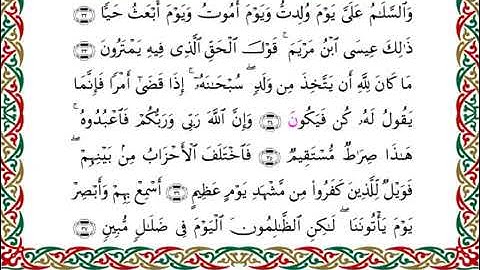 وَٱلسَّلَـٰمُ عَلَىَّ يَوْمَ وُلِدتُّ وَيَوْمَ أَمُوتُ وَيَوْمَ أُبْعَثُ حَيًّا ٣٣
ذَٰلِكَ عِيسَى ٱبْنُ مَرْيَمَ ۚ قَوْلَ ٱلْحَقِّ ٱلَّذِى فِيهِ يَمْتَرُونَ ٣٤
مَا كَانَ لِلَّهِ أَن يَتَّخِذَ مِن وَلَدٍ ۖ سُبْحَـٰنَهُۥٓ ۚ إِذَا قَضَىٰٓ أَمْرًا فَإِنَّمَا
يَقُولُ لَهُۥ كُن فَيَكُونُ ٣٥ وَإِنَّ ٱللَّهَ رَبِّى وَرَبُّكُمْ فَٱعْبُدُوهُ ۚ
هَـٰذَا صِرَٰطٌ مُّسْتَقِيمٌ ٣٦ فَٱخْتَلَفَ ٱلْأَحْزَابُ مِنۢ بَيْنِهِمْ ۖ
فَوَيْلٌ لِّلَّذِينَ كَفَرُوا۟ مِن مَّشْهَدِ يَوْمٍ عَظِيمٍ ٣٧ أَسْمِعْ بِهِمْ وَأَبْصِرْ
يَوْمَ يَأْتُونَنَا ۖ لَـٰكِنِ ٱلظَّـٰلِمُونَ ٱلْيَوْمَ فِى ضَلَـٰلٍ مُّبِينٍ ٣٨